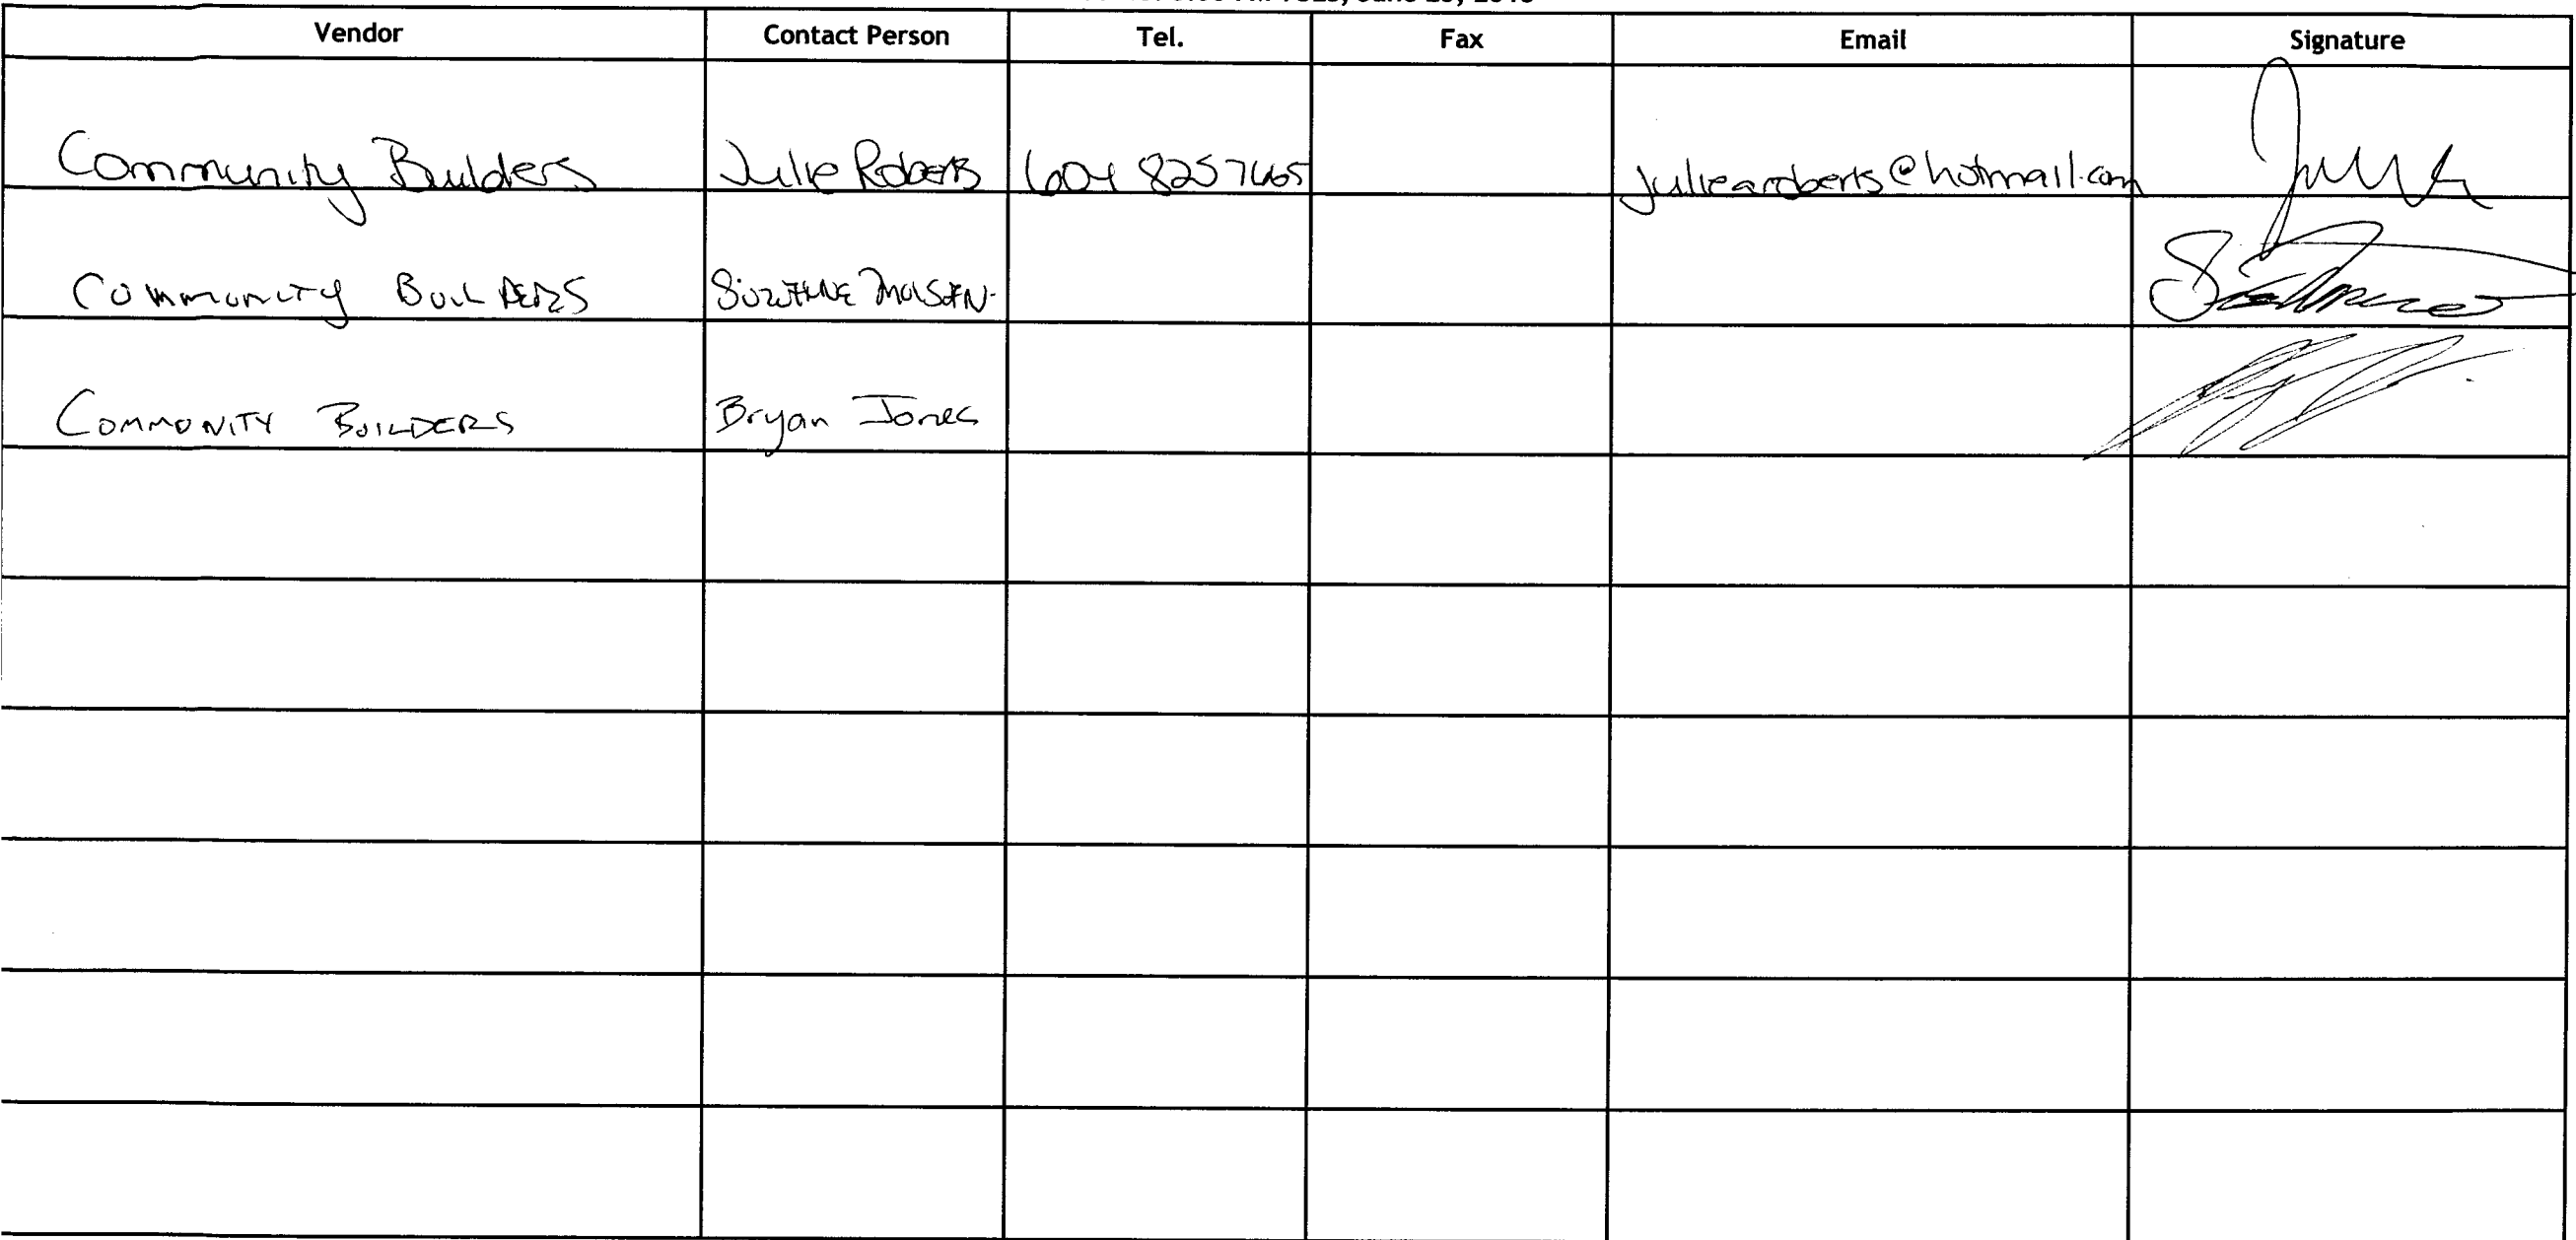 Vendor Contact Person Tel. Fax Email Signature
Community Builders Julie Roberts 604 8257665 juliearoberts@hotmail.com
COMMUNITY BUILDERS SUZANNE
COMMUNITY BUILDERS Bryan Jones